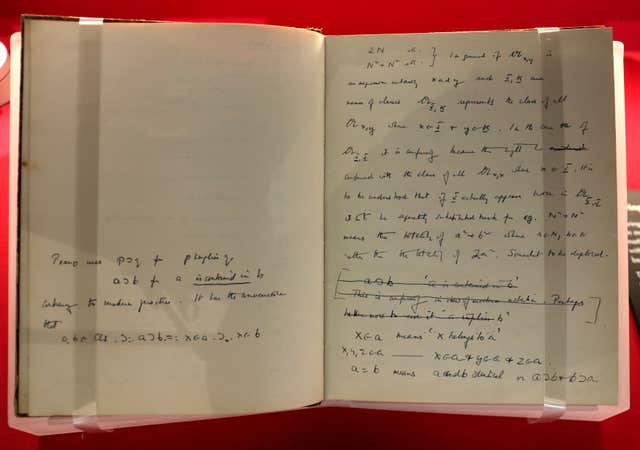 Peano uses p⊃q for p implies q
a⊃b for a is contained in b
contrary to modern practice. It has the
that
a,b ∈ Cls .⊃: a⊃b .=: x∈a .⊃ₓ. x∈b
2N etc.
N² + N² etc. } In general if 𝔄x,y is
an expression x and y and X, Y are
names of classes 𝔄X,Y represents the class of all
𝔄x,y where x∈X & y∈Y. In the case of
𝔄X,X it is confusing because
confused with the class of all 𝔄x,x where x∈X. It is
to be understood that if X actually appears twice in 𝔄X,X
it is to be separately substituted for e.g. N² + N²
means the totality of a² + b² where a∈N, b∈N
rather than the totality of 2a². Somewhat to be deplored.
a⊃b 'a is contained in b'
This is confusing in view of modern notation. Perhaps
better now to read it 'a implies b'
x∈a means 'x belongs to a'
x,y,z∈a —— x∈a & y∈a & z∈a.
a = b means a and b identical or a⊃b & b⊃a